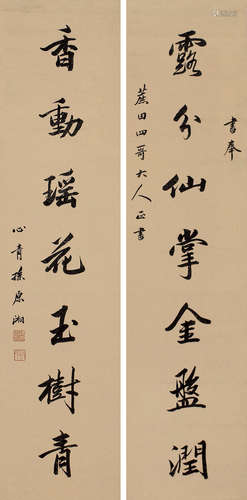 書奉
露分仙掌金盤潤
蔗田四哥大人正書
香動瑤花玉樹青
心青孫原湘